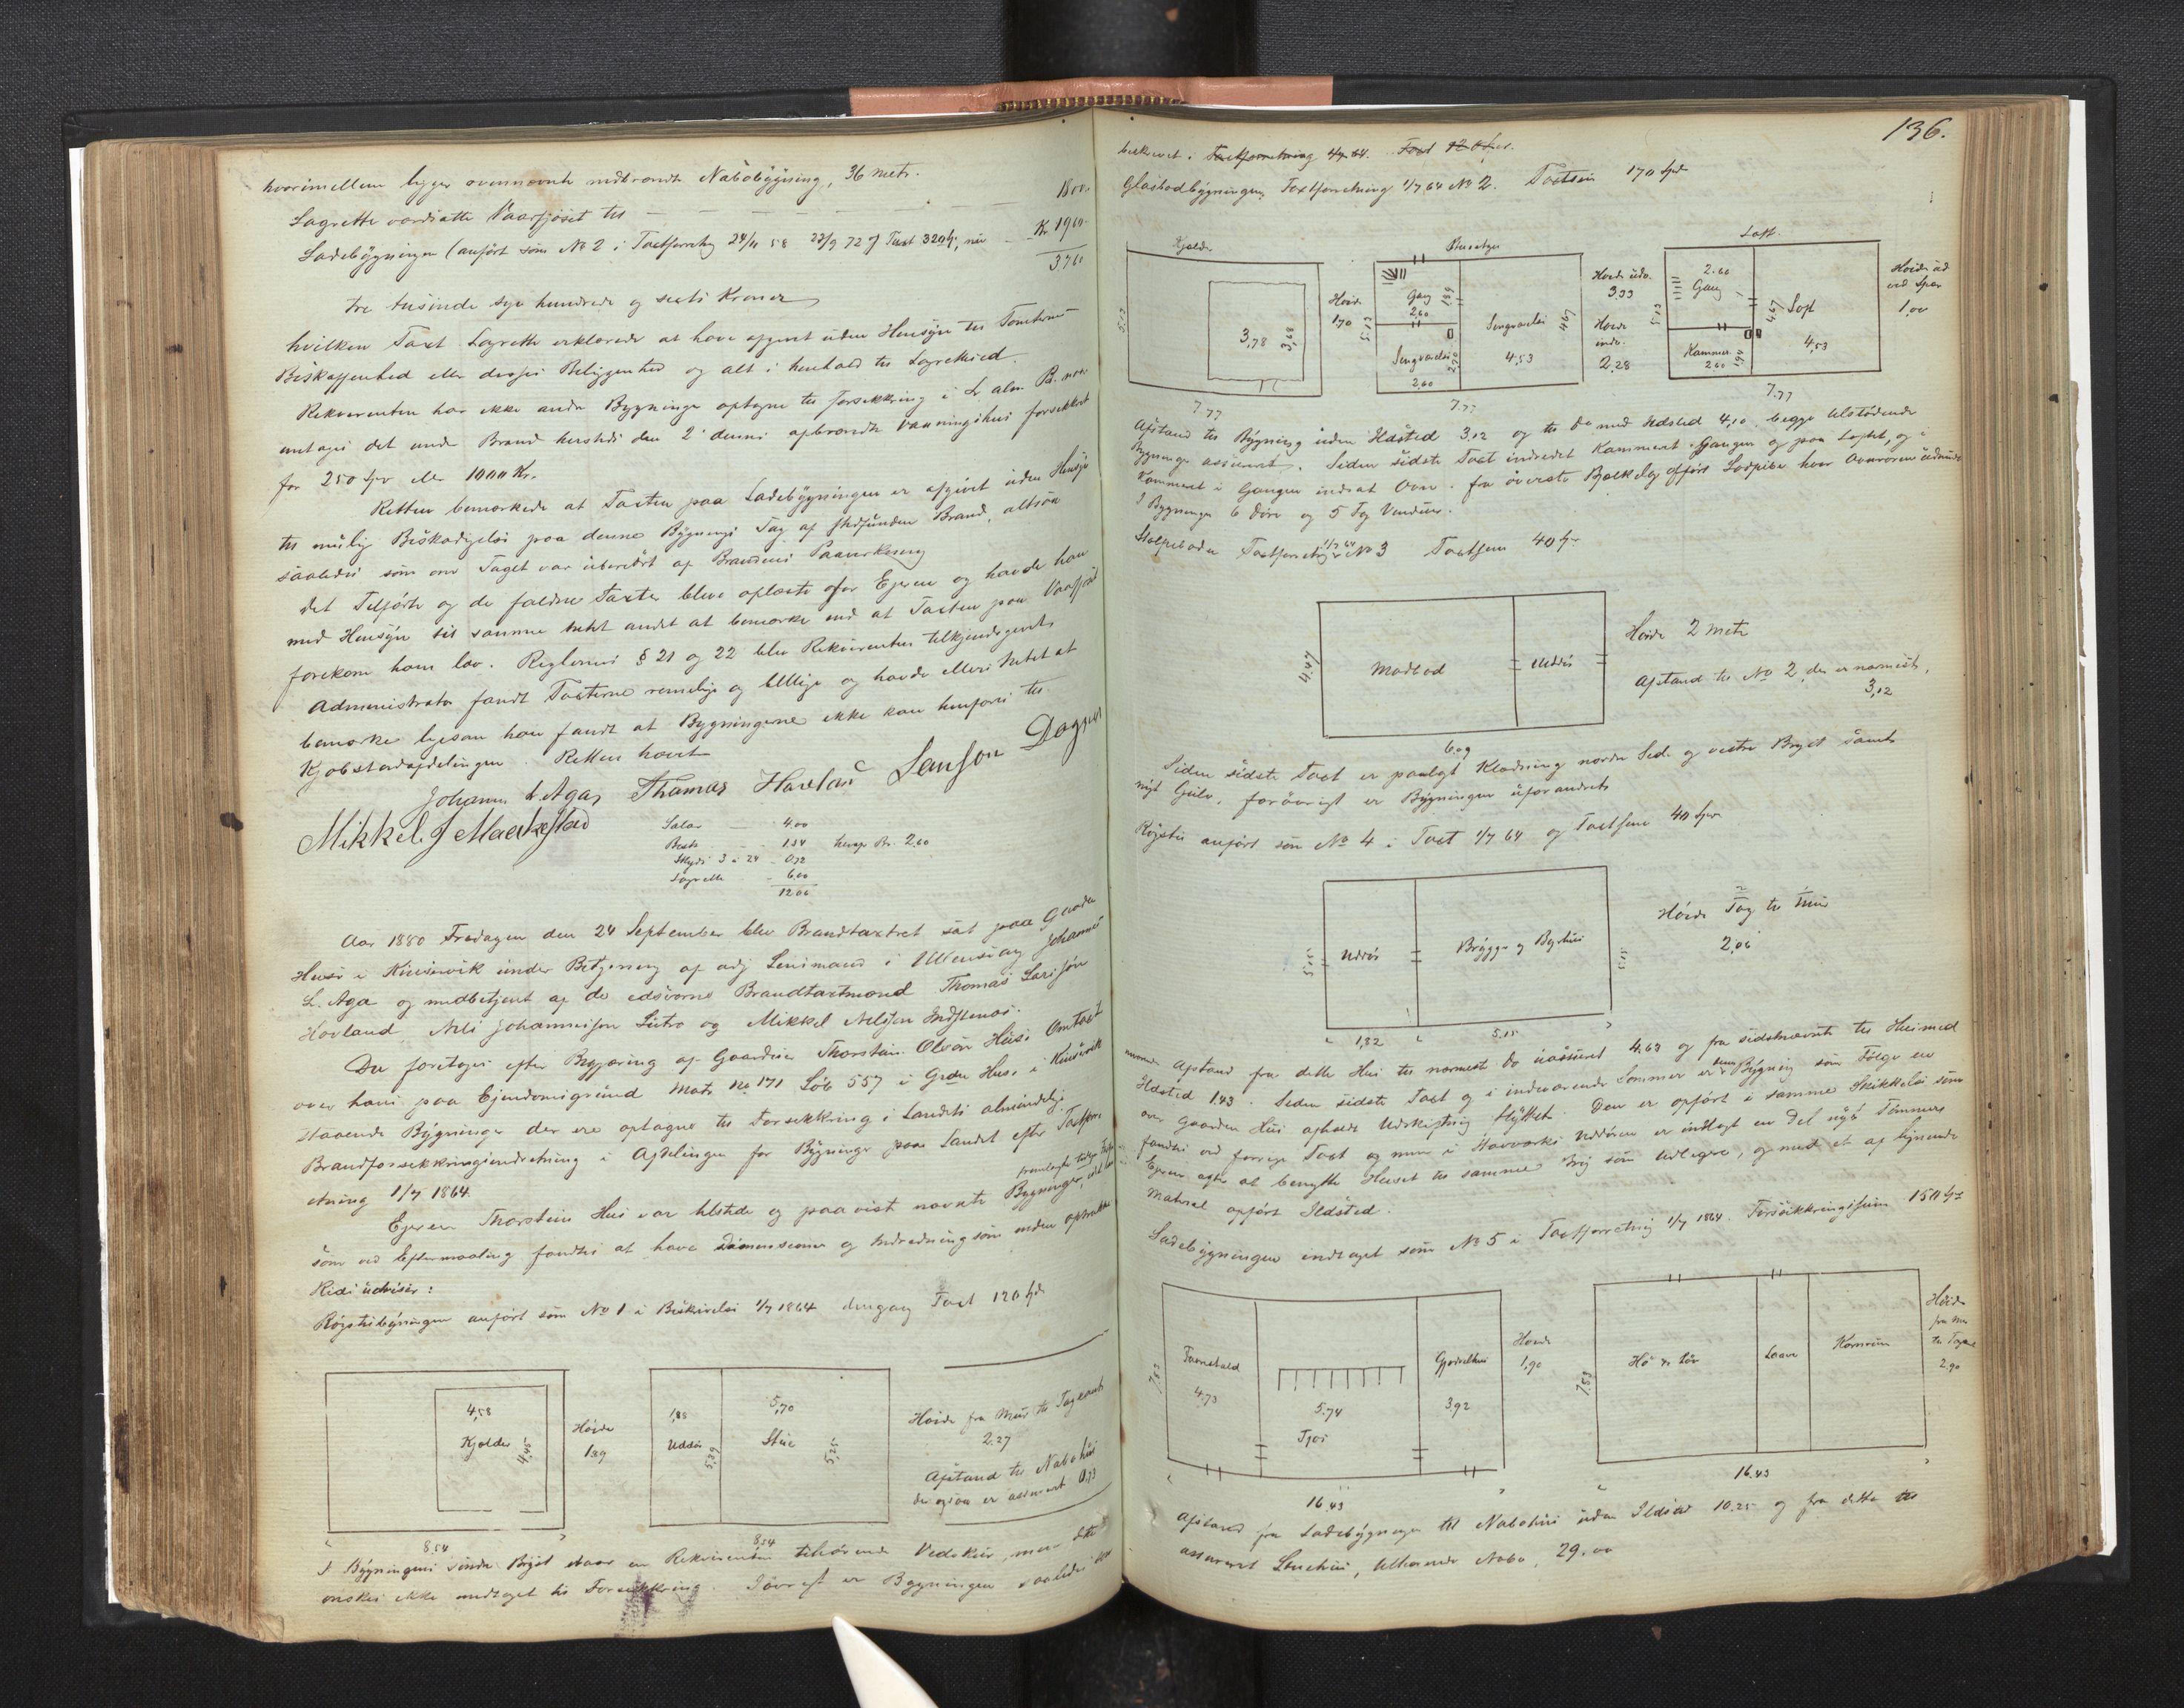 hvorimellem ligger ovennævnte nedbrændte Nabobygning, 36 Metr.
Lagrette værdsatte Vaarfjøset til — — — — — 1800.
Ladebygningen (anført som No 2 i Taxtforretng 24/11 58 23/9 72 Taxt 320 Spd., nu — Kr 1960
3760
tre tusinde syv hundrede og sexti Kroner
hvilken Taxt Lagrette erklærede at have afgivet uden Hensyn til Tomternes
Beskaffenhed eller disses Beliggenhed og alt i henhold til Lagretteed.
Rekvirenten har ikke andre Bygninger optagne til forsikkring i L. alm. B. men
antages det under Brand hersteds den 2 denne afbrændte Vaaningshus forsikkret
for 250 Spd eller 1000 Kr.
Retten bemærkede at Taxten paa Ladebygningen er afgivet uden Hensyn
til mulig Beskadigelse paa denne Bygnings Tag af stedfunden Brand, altsaa
saaledes som om Taget var uberørt af Brandens Paavirkning
Det Tilførte og de faldne Taxter bleve oplæste for Ejeren og havde han
med Hensyn til samme intet andet at bemærke end at Taxten paa Vaarfjøset
forekom ham lav. Reglernes § 21 og 22 blev Rekvirenten tilkjendegivet.
Administrator fandt Taxterne rimelige og billige og havde ellers intet at
bemærke ligesom han fandt at Bygningerne ikke kan henføres til
Kjøbstadafdelingen. Retten hævet
Johannes L. Aga, Thomas Havland Larsson Dagger
Mikkel J Maakestad
Salær — 4.00
Besto — 1.34 heraf Br. 2.60
Skyds 3 a 24 - 0.72
Lagrette - 6.00
12.06
Aar 1880 Fredagen den 24 September blev Brandtaxtret sat paa Gaarden
Huse i Kinservik under Betjening af adj Lensmand i Ullensvang Johannes
L. Aga og medbetjent af de edsvorne Brandtaxtmænd Thomas Larsson
Hovland, Nils Johannessen Lutro og Mikkel Nilssen Instenæs.
Der foretages efter Begjæring af Gaardbr. Thorstein Olsen Huse Omtaxt
over hans paa Ejendomsgrund Matr. No 171 Løb 557 i Grdn Huse i Kinservik
staaende Bygninger der ere optagne til Forsikkring i Landets almindelige
Brandforsikkringsindretning i Afdelingen for Bygninger paa Landet efter Taxtforr-
etning 1/7 1864.
Ejeren Thorstein Huse var tilstede og paaviste nævnte Bygninger,
som ved Eftermaaling fandtes at have Dimensioner og Indredning som neden optrukne
Rids udviser:
Røgstuebygningen anført som No 1 i Beskrivelse 1/7 1864 dengang Taxt 120 Spd
4,58
Kjælder
4,45
Høide
1,29
8,54
1,85
Uddør
5,39
5,70
Stue
5,25
8,54
Høide fra Muur til Tagkant
2.27
Afstand til Nabohus
der ogsaa er assureret 0,73
I Bygningens søndre Bryst staar en Rekvirenten tilhørende Vedskur, men dette
ønskes ikke medtaget til Forsikkring. Iøvrigt er Bygningen saaledes som
136.
beskrevet i Taxtforretning 1/7 64.
Glasbodbygningen, Taxtforretning 1/7 64 No 2. Taxtsum 170 Spd
Kjelder
5.13
3,78
3,68
7.77
Høide
1.70
Beetage
Gang
2,60
1,89
5.13
Sengværelse
2,60
2,70
Sengværelse
4,53
4,67
7.77
Høide udv.
3.93
Høide
indv.
2,28
Loft.
2.60
Gang
5.13
Kammer
2.60
1,94
4.67
Loft
4,53
7.77
Høide ud
ved Spær
1,00
Afstand til Bygning uden Ildsted 3,12 og til Do med Ildsted 4,10, begge tilstødende
Bygninger assureret. Siden sidste Taxt indredet Kammeret i Gangen og paa Loftet, og i
Kammeret i Gangen indsat Ovn. fra øverste Bjælkelag opført Lodpibe hvor Ovnrøren udmunde
I Bygningen 6 Døre og 5 Fag Vinduer.
Stolpeboden Taxtforretng 1/7 64 No 3 Taxtsum 40 Spd
4.47
Madbod
Uddør
6,09
Høide 2 Metr
Afstand til No 2, der er nærmest,
3,12
Siden sidste Taxt er paalagt Klædning nordre Side og vestre Bryst samt
nyt Gulv, forøvrigt er Bygningen uforandret
Røgstue anført som No 4 i Taxt 1/7 64 og Taxtsum 40 Spd
5.15
Uddør
Brygge og Baghus
5.15
1,32
5.15
Høide Tag til Muur
2,06
Afstand fra dette Hus til nærmeste do uassureret 4.63 og fra sidstnævnte til Huse med
Ildsted 1.43. Siden sidste Taxt og i indeværende Sommer er denne Bygning som Følge en
over Gaarden Huse afholdt Udskiftning flyttet. Den er opført i samme Skikkelse som
fandtes ved forrige Taxt og men i Udværkets Uddøren er indlagt en Del nyt Tømmer.
Ejeren agter at benytte Huset til samme Brug som tidligere, og med et af lignende
Material opført Ildsted.
Ladebygningen indtaget som No 5 i Taxtforretng 1/7 1864. Forsikkringssum 150 Spd
7.53
4.73
5.74
Fjøs
Gjødselhus
3.92
16.43
Høide
1,90
7,53
Hø
Laave
Kornrum
16.43
Høide
fra Mur
til Tagsk
2.90
Afstand fra Ladebygningen til Nabohus uden Ildsted 10.25 og fra dette til
assureret Stuehus, tilhørende Nabo, 29.00